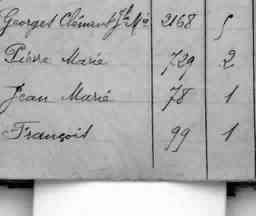 Georges Clément Jh Mie 2168 5
Pierre Marie 729 2
Jean Marie 78 1
François 99 1